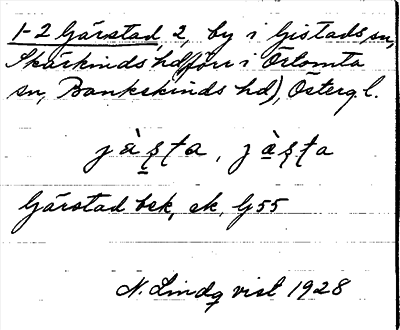 1-2 Gärstad, 2, by i Gistads sn,
Skärkinds hd (förr i Örtomta
sn, Bankekinds hd), Östergl.
jä̀ʂʈa, jà̤ʂʈa
Gärstad bek, ek, G 55
N. Lindqvist 1928